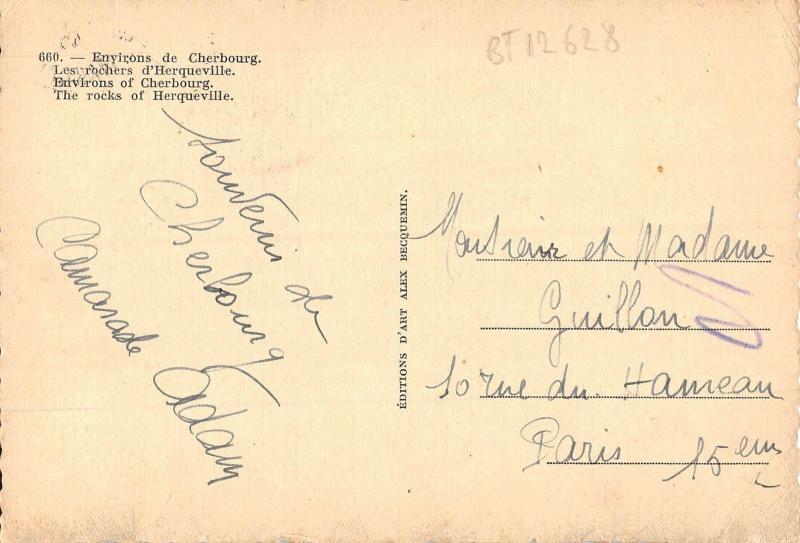 BT12628
660. — Environs de Cherbourg.
Les rochers d'Herqueville.
Environs of Cherbourg.
The rocks of Herqueville.
souvenir de
Cherbourg
Camarade Adam
ÉDITIONS D'ART ALEX BECQUEMIN.
Monsieur et Madame
Guillon
10 rue du Hameau
Paris 15 em